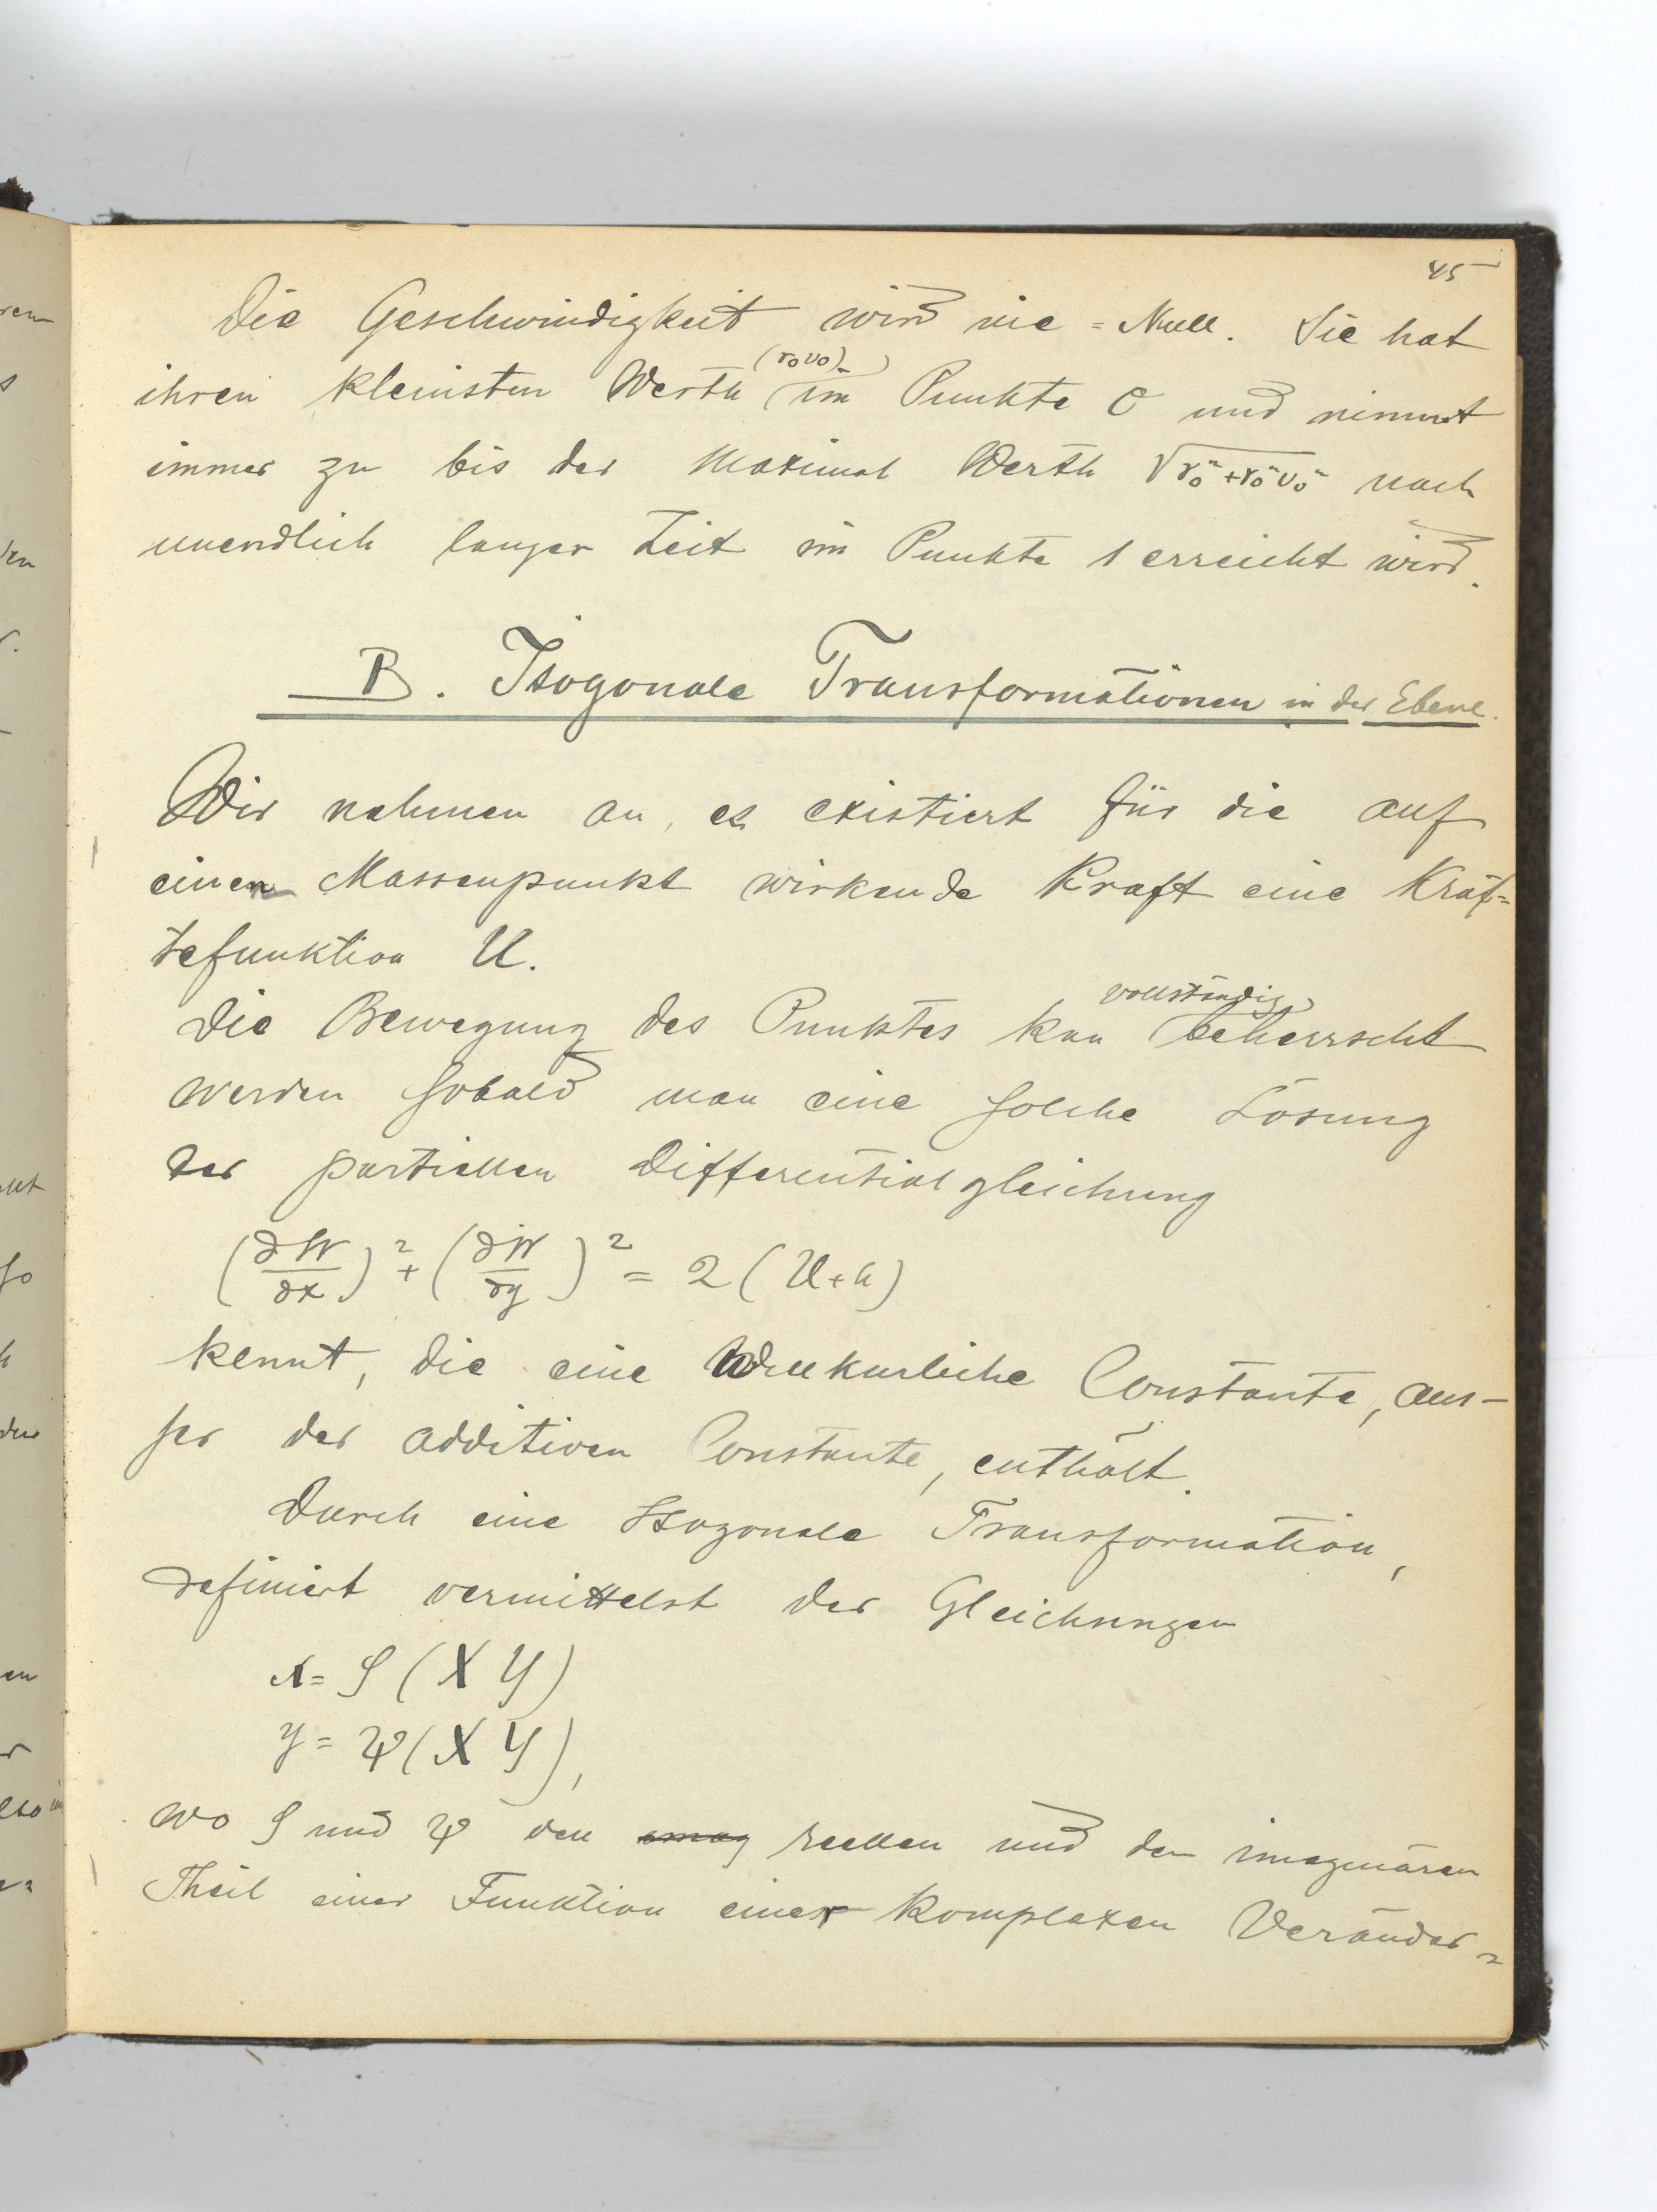 45
Die Geschwindigkeit wird nie = Null. Sie hat
(r₀υ₀)
ihren kleinsten Werth im Punkte O und nimmt
immer zu bis der Maximal Werth √r₀²+r₀²υ₀² nach
unendlich langer Zeit im Punkte 1 erreicht wird.
B. Isogonale Transformationen in der Ebene.
Wir nehmen an, es existiert für die auf
einen Massenpunkt wirkende Kraft eine Kräf=
tefunktion U.
vollständig
Die Bewegung des Punktes kan beherrscht
werden sobald man eine solche Lösung
der partiellen Differentialgleichung
(∂W/∂x)² + (∂W/∂y)² = 2(U+h)
kennt, die eine Willkurliche Constante, aus-
ser der additiven Constante, enthält.
Durch eine Isogonale Transformation,
definiert vermittelst der Gleichungen
x = φ(X Y)
y = ψ(X Y),
wo φ und ψ den imag reellen und den imaginären
Theil einer Funktion einer komplexen Veränder=